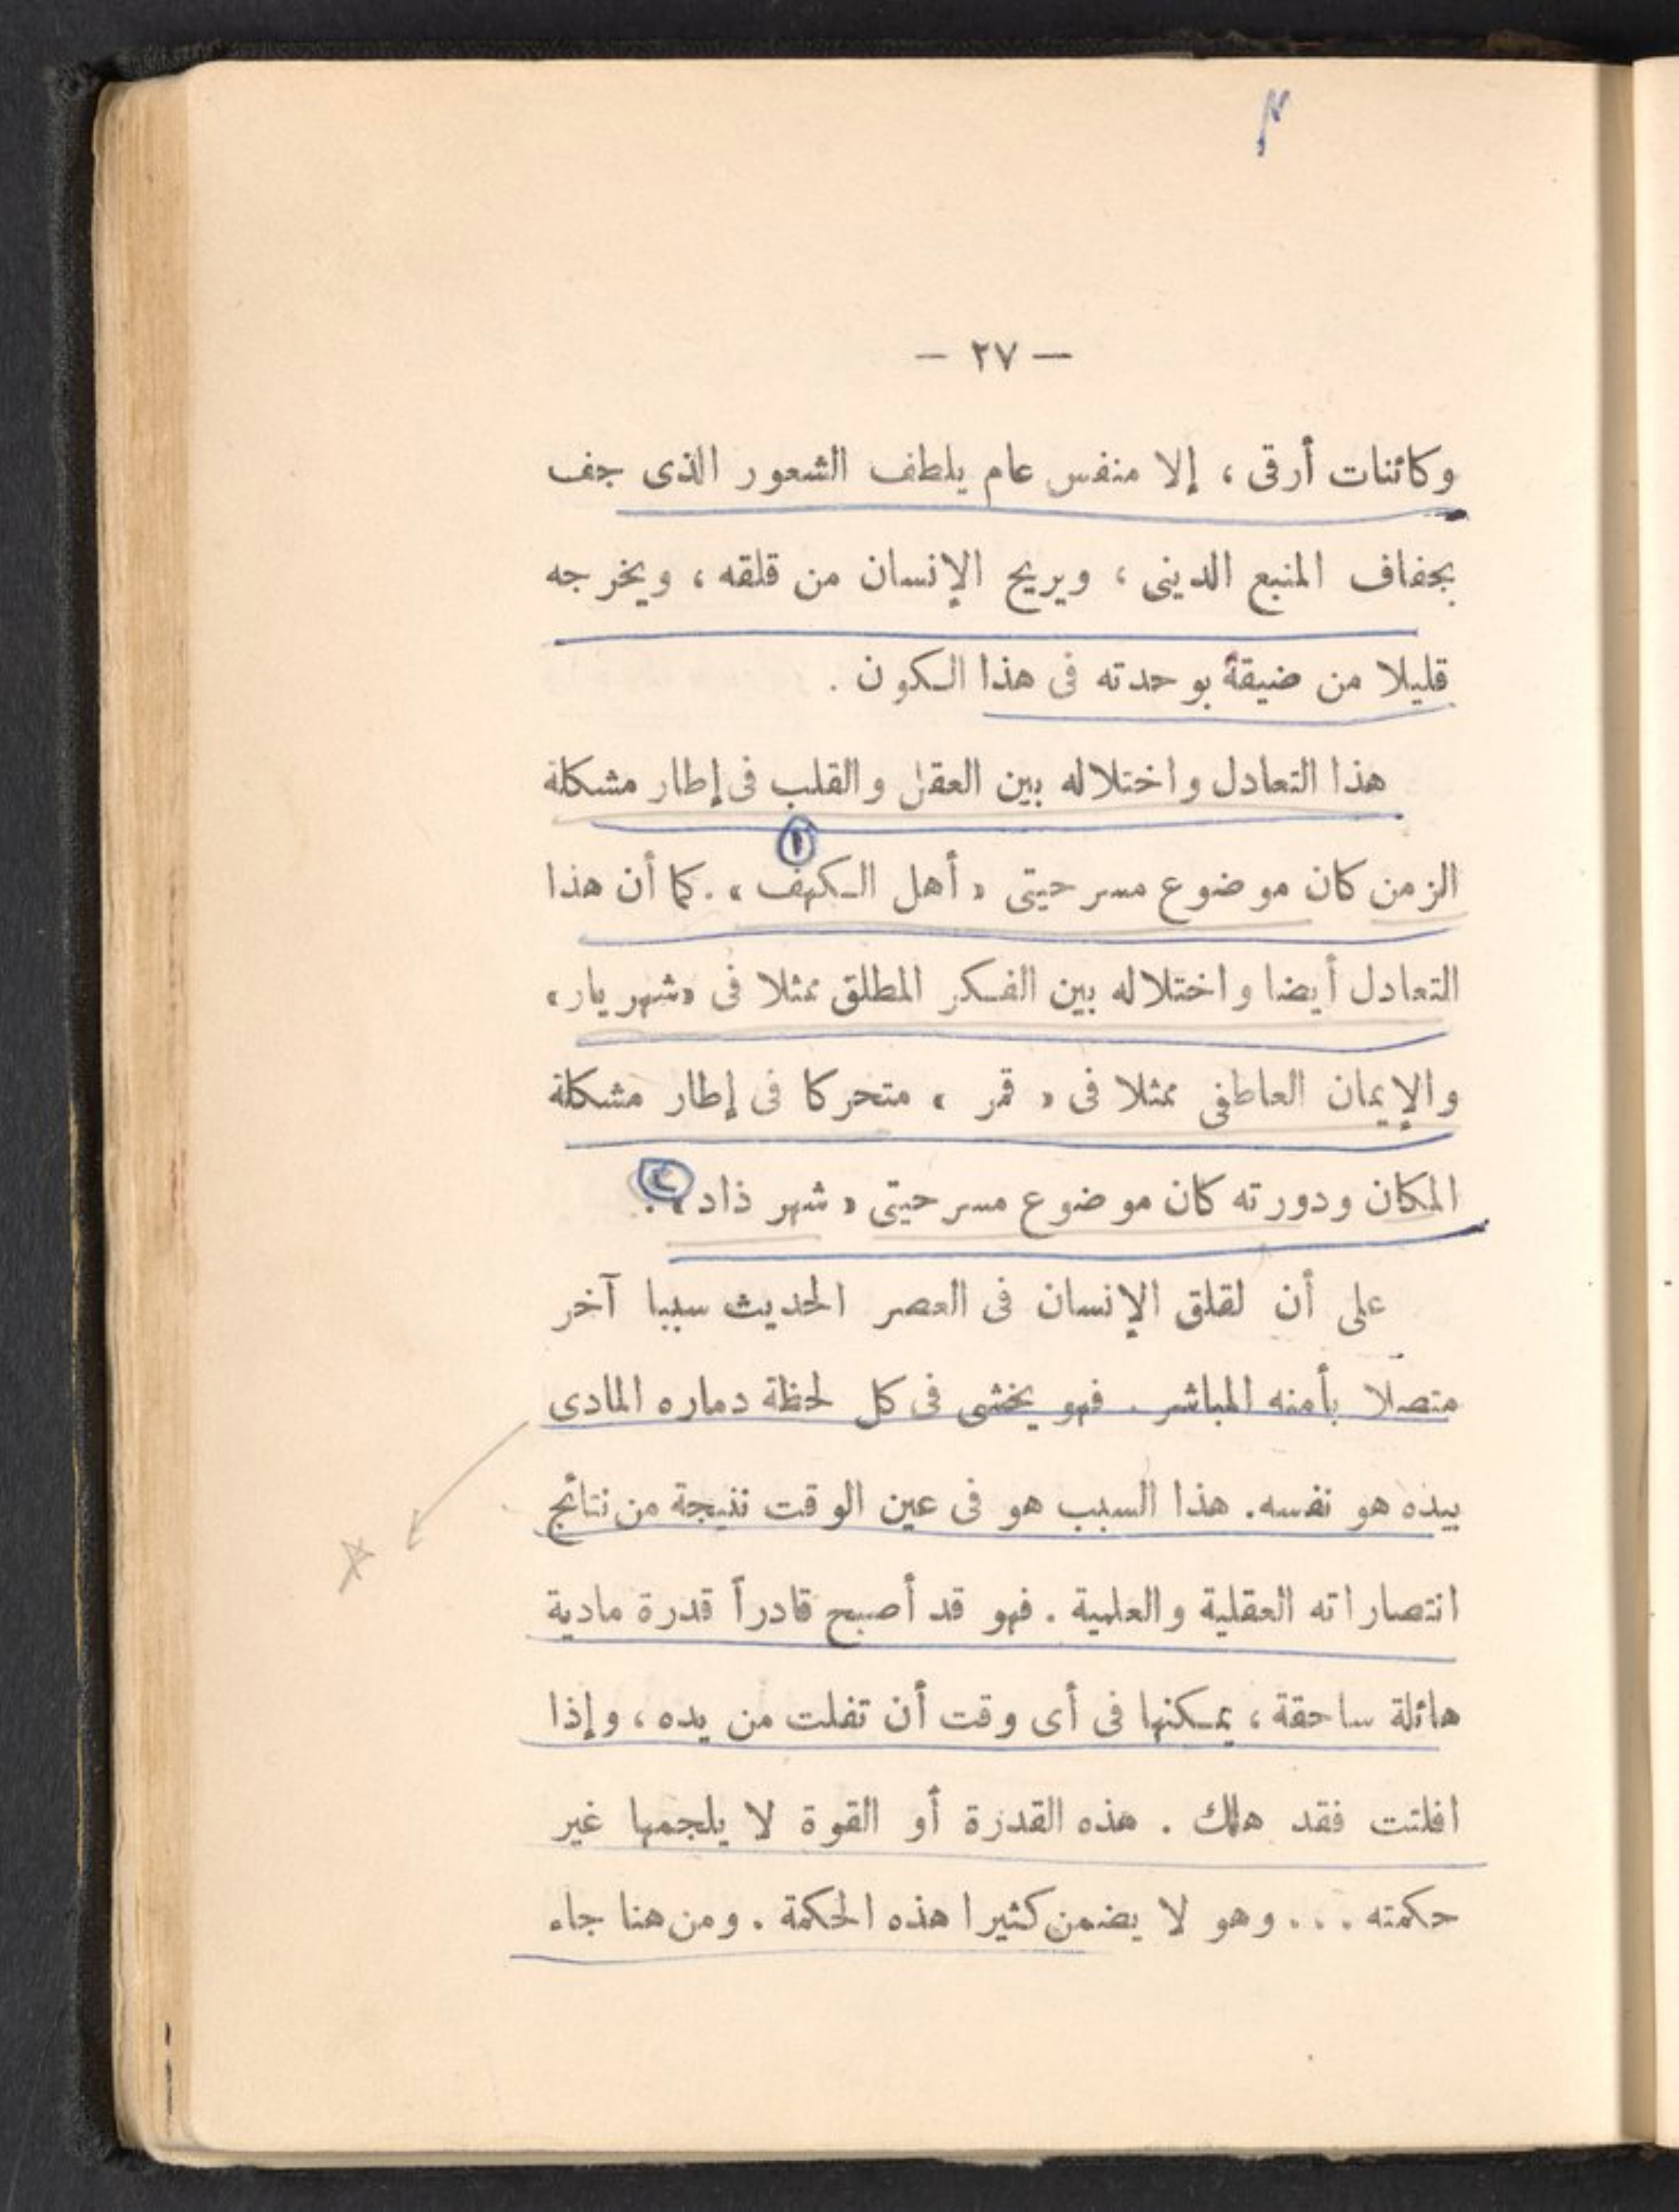 — ٢٧ —
وكائنات أرقى ، إلا منفس عام يلطف الشعور الذى جف
بجفاف المنبع الدينى ، ويريح الإنسان من قلقه ، ويخرجه
قليلا من ضيقة بوحدته فى هذا الكون .
هذا التعادل واختلاله بين العقل والقلب فى إطار مشكلة
١
الزمن كان موضوع مسرحيتى « أهل الكهف » . كما أن هذا
التعادل أيضا واختلاله بين الفكر المطلق ممثلا فى «شهريار»
والإيمان العاطفى ممثلا فى « قمر » متحركا فى إطار مشكلة
المكان ودورته كان موضوع مسرحيتى « شهر ذاد » . ٢
على أن لقلق الإنسان فى العصر الحديث سببا آخر
متصلا بأمنه المباشر . فهو يخشى فى كل لحظة دماره المادى
بيده هو نفسه . هذا السبب هو فى عين الوقت نتيجة من نتائج
انتصاراته العقلية والعلمية . فهو قد أصبح قادراً قدرة مادية
هائلة ساحقة ، يمكنها فى أى وقت أن تفلت من يده ، وإذا
افلتت فقد هلك . هذه القدرة أو القوة لا يلجمها غير
حكمته . . . وهو لا يضمن كثيرا هذه الحكمة . ومن هنا جاء